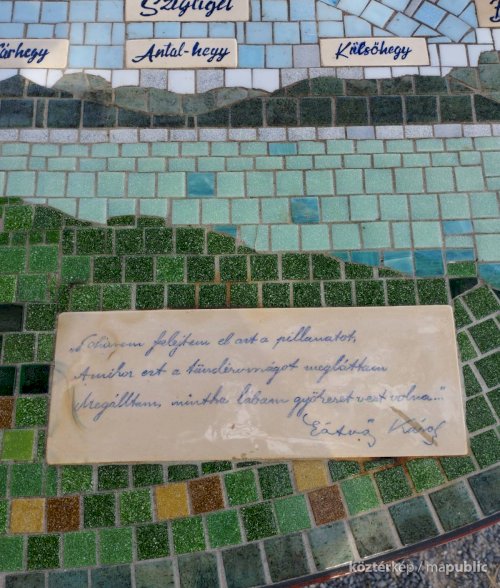 Szigliget
Antal-hegy
Külsőhegy
„Sohasem felejtem el azt a pillanatot,
Amikor ezt a tündérországot megláttam
Megálltam, mintha lábam gyökeret vert volna..."
Eötvös Károly
köztérkép / mapublic